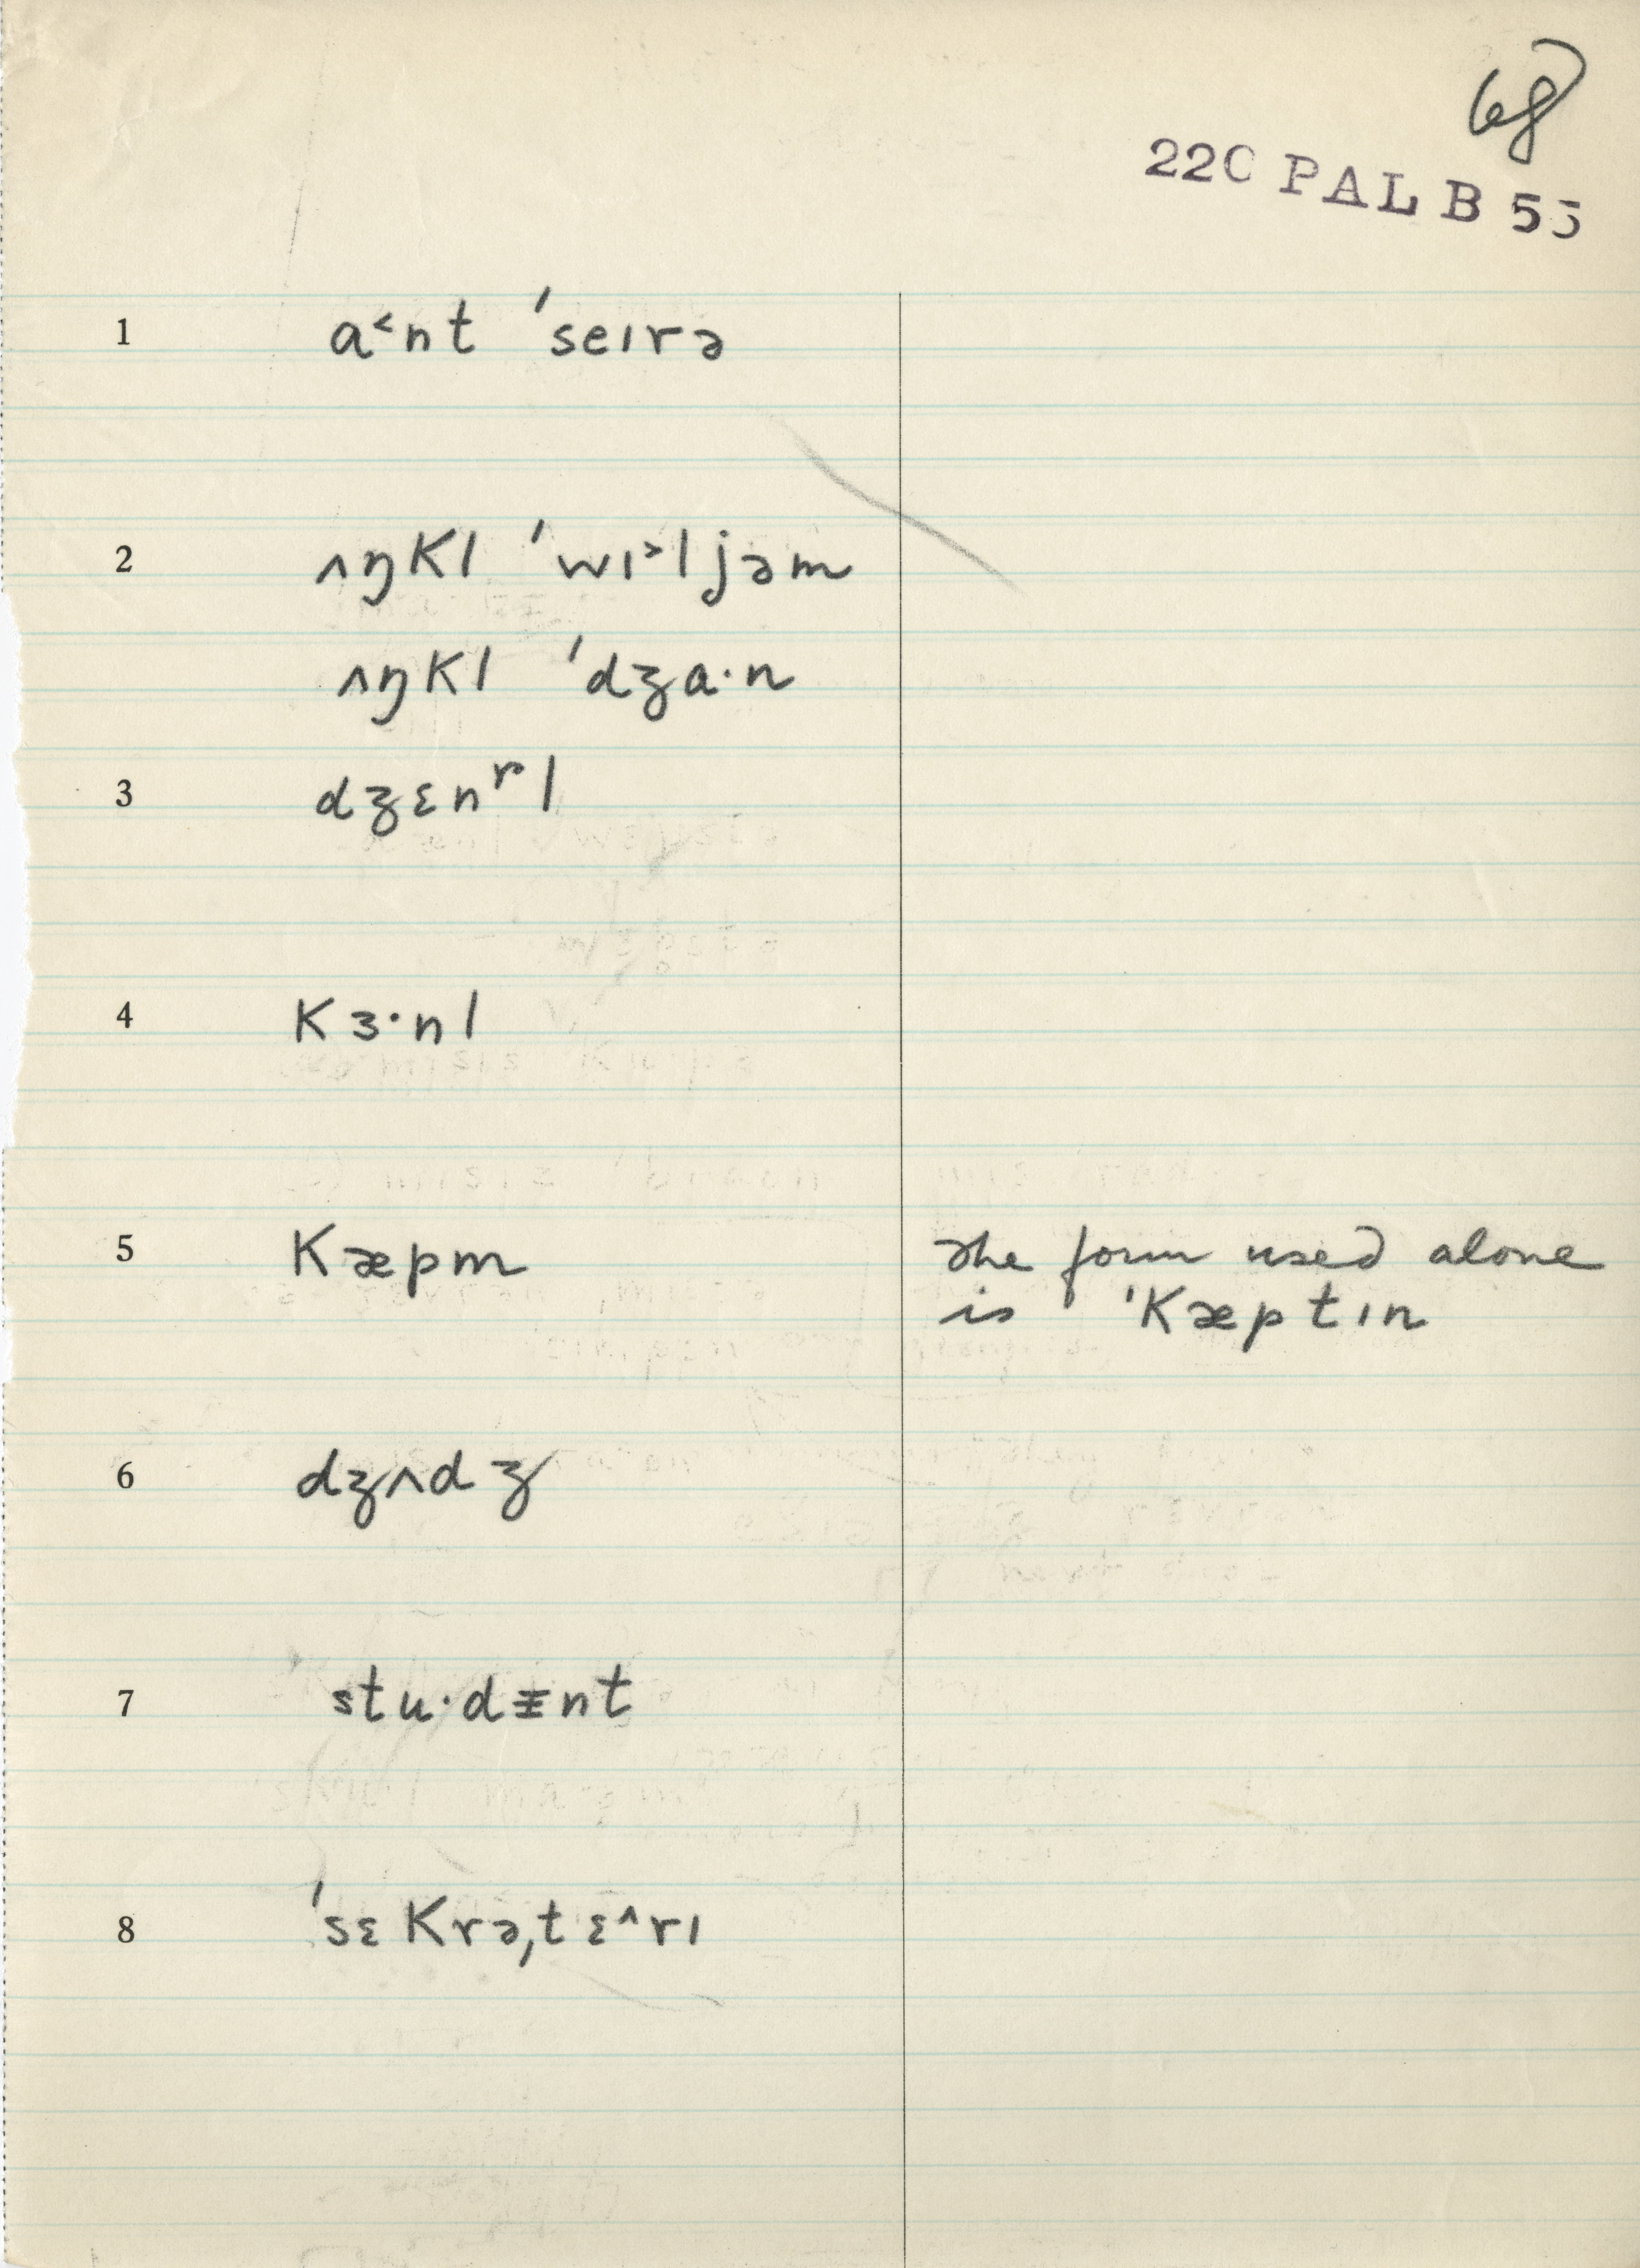 68
220 PAL B 55
1 a˂nt ˈseɪrə
2 ʌŋkl ˈwɪ˃ljəm
ʌŋkl ˈdʒa·n
3 dʒɛnʳl
4 kɜ·nl
5 kæpm
the form used alone
is ˈkæptɪn
6 dʒʌdʒ
7 stu·dɪ̵nt
8 ˈsɛkrəˌtɛ^rɪ